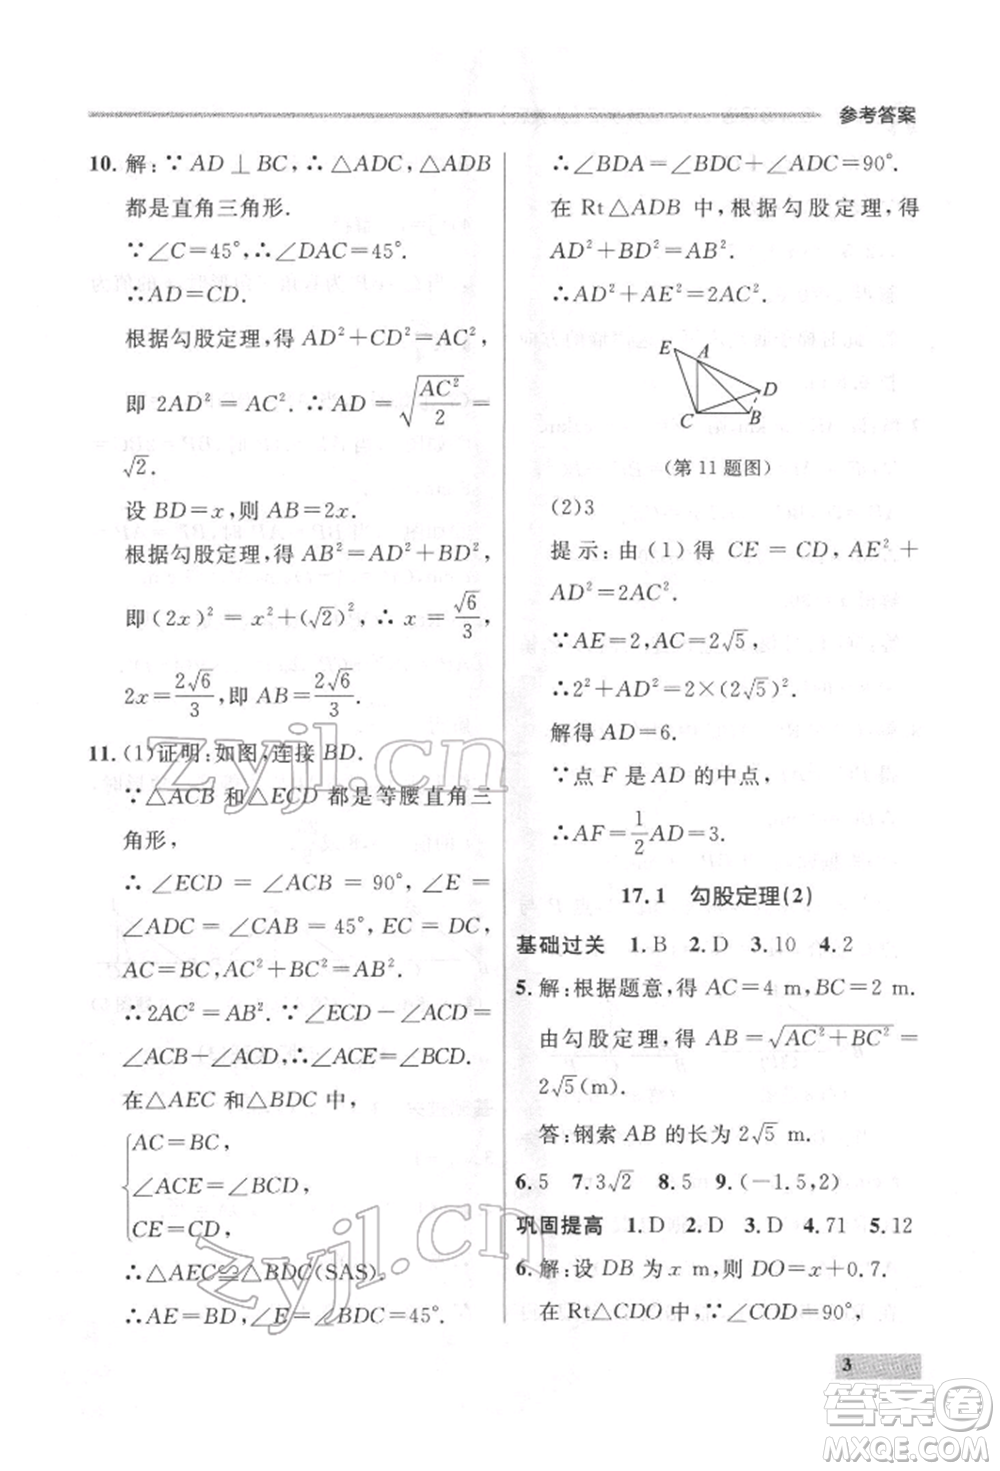 参考答案
10. 解:∵AD⊥BC,∴△ADC,△ADB
都是直角三角形.
∵∠C=45°,∴∠DAC=45°.
∴AD=CD.
根据勾股定理,得 AD²+CD²=AC²,
即 2AD²=AC². ∴AD=√(AC²/2)=
√2.
设 BD=x,则 AB=2x.
根据勾股定理,得 AB²=AD²+BD²,
即(2x)²=x²+(√2)²,∴x=√6/3,
2x=2√6/3,即 AB=2√6/3.
11. (1)证明:如图,连接 BD.
∵△ACB 和△ECD 都是等腰直角三
角形,
∴∠ECD=∠ACB=90°,∠E=
∠ADC=∠CAB=45°,EC=DC,
AC=BC,AC²+BC²=AB².
∴2AC²=AB². ∵∠ECD-∠ACD=
∠ACB-∠ACD,∴∠ACE=∠BCD.
在△AEC 和△BDC 中,
AC=BC,
∠ACE=∠BCD,
CE=CD,
∴△AEC≌△BDC(SAS).
∴AE=BD,∠E=∠BDC=45°.
∴∠BDA=∠BDC+∠ADC=90°.
在 Rt△ADB 中,根据勾股定理,得
AD²+BD²=AB².
∴AD²+AE²=2AC².
E A D C B
(第 11 题图)
(2)3
提示:由(1)得 CE=CD,AE²+
AD²=2AC².
∵AE=2,AC=2√5,
∴2²+AD²=2×(2√5)².
解得 AD=6.
∵点 F 是 AD 的中点,
∴AF=1/2AD=3.
17.1 勾股定理(2)
基础过关 1.B 2.D 3.10 4.2
5. 解:根据题意,得 AC=4 m,BC=2 m.
由勾股定理,得 AB=√(AC²+BC²)=
2√5(m).
答:钢索 AB 的长为 2√5 m.
6.5 7.3√2 8.5 9.(-1.5,2)
巩固提高 1.D 2.D 3.D 4.71 5.12
6. 解:设 DB 为 x m,则 DO=x+0.7.
在 Rt△CDO 中,∵∠COD=90°,
3
zyjl.cn
zyjl.cn
答案圈
MXQE.COM